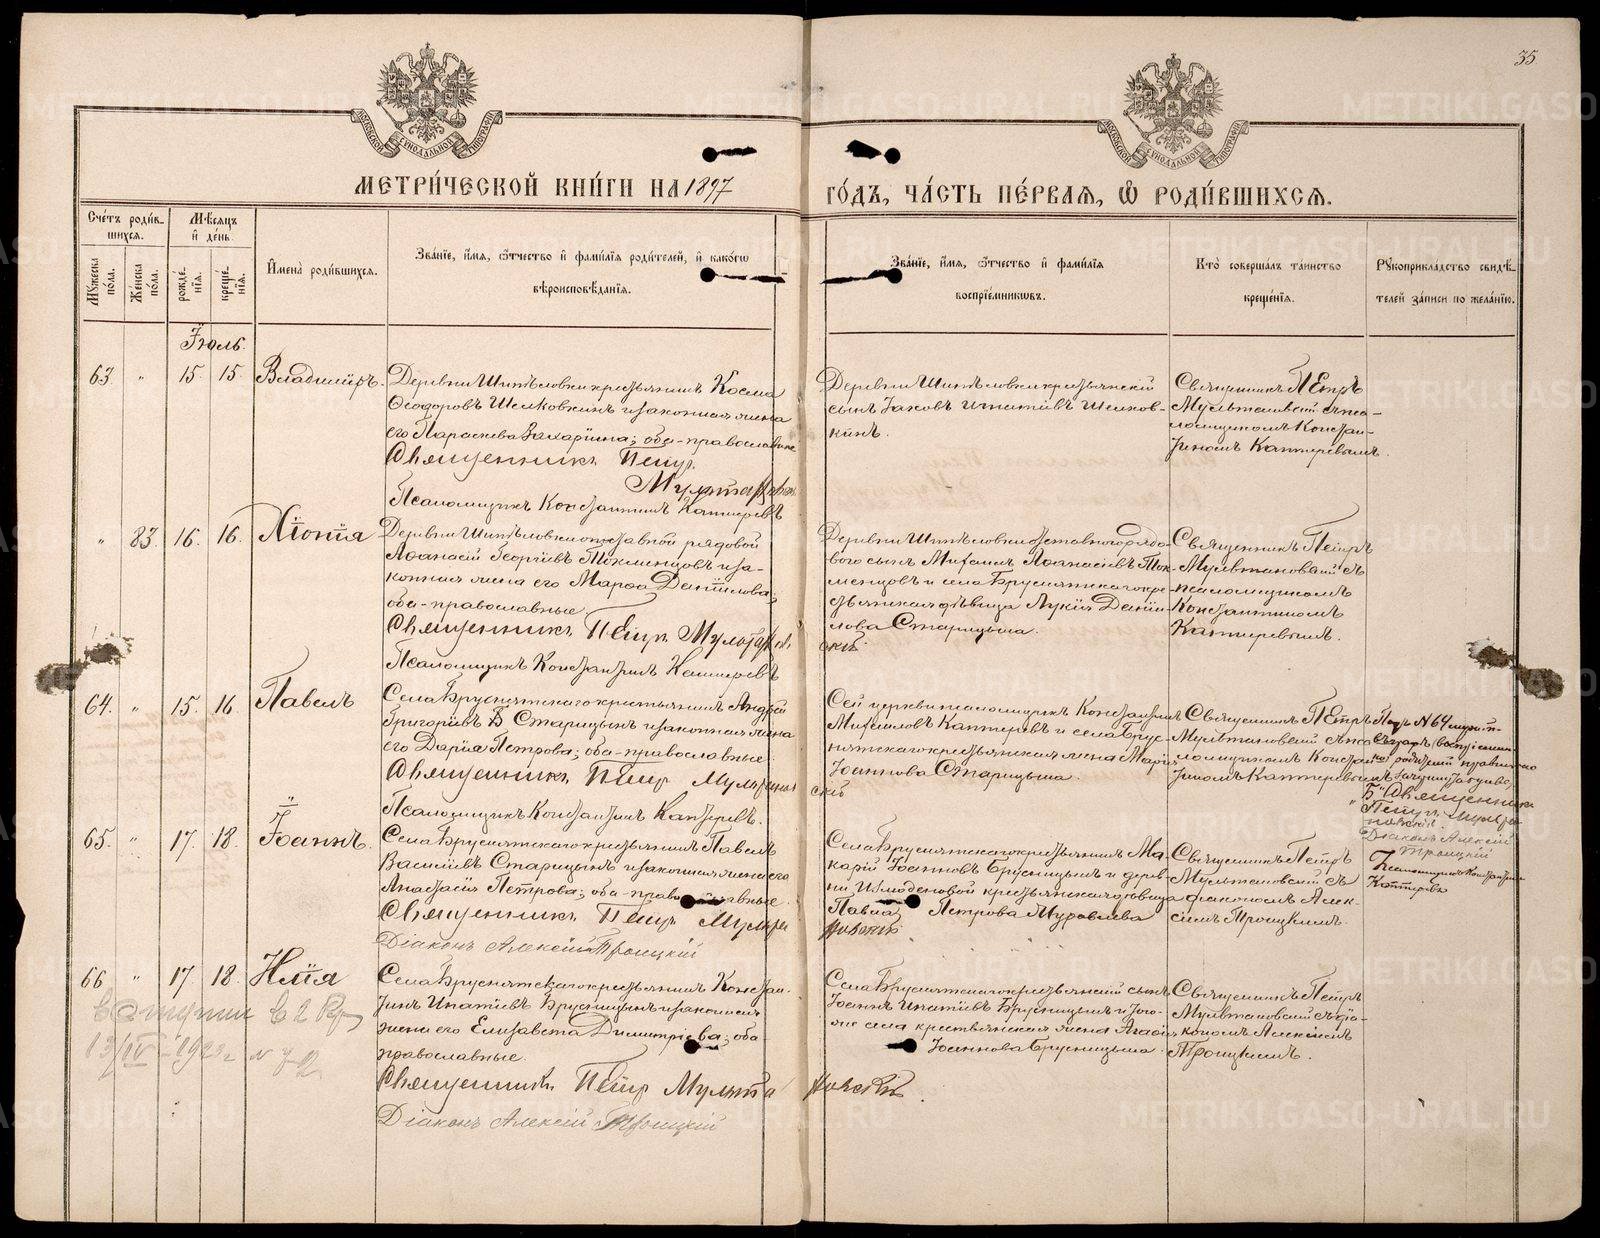 35
МОСКОВСКОЙ СѴНОДАЛЬНОЙ ТИПОГРАФІИ
МОСКОВСКОЙ СѴНОДАЛЬНОЙ ТИПОГРАФІИ
МЕТРИ́ЧЕСКОЙ КНИ́ГИ НА 1897
ГО́ДЪ, ЧА́СТЬ ПЕ́РВАЯ, Ѡ РОДИ́ВШИХСЯ.
Сче́тъ роди́в-
шихся.
Мꙋ́жеска по́ла.
Же́нска по́ла.
Мѣ́сяцъ
и де́нь.
рожде́-
нїя.
креще́-
нїя.
И́мена роди́вшихся.
Зва́нїе, и́мя, ѻ́тчество и фами́лїя роди́телей, и како́гѡ
вѣроисповѣ́данїя.
Зва́нїе, и́мя, ѻ́тчество и фами́лїя
воспрїе́мникѡвъ.
Кто̀ соверша́лъ та́инство
креще́нїя.
Рꙋкоприкла́дство свидѣ́-
телей за́писи по жела́нїю.
Іюль.
63 " 15. 15. Владиміръ.
Деревни Шипѣловки крестьянинъ Косма
Ѳеодоровъ Шелковкинъ и законная жена
его Параскева Захаріина; оба-православные
Священникъ Петръ
Мультановскій
Псаломщикъ Константинъ Каптеревъ
Деревни Шипѣловки крестьянскій
сынъ Іаковъ Ипатіевъ Шелков-
кинъ.
Священникъ Петръ
Мультановскій съ пса-
ломщикомъ Констан-
тиномъ Каптеревымъ.
" 83. 16. 16.
Деревни Шипѣловки отставной рядовой
Аѳанасій Георгіевъ Токменцовъ и за-
конная жена его Марѳа Даніилова;
оба-православные.
Священникъ Петръ Мультанов
Псаломщикъ Константинъ Каптеревъ
Деревни Шипѣловки отставного рядо-
вого сынъ Михаилъ Аѳанасіевъ Ток-
менцовъ и села Бруснятскаго кре-
стьянская дѣвица Лукія Даніи-
лова Старицына.
скій
Священникъ Петръ
Мультановскій съ
псаломщикомъ
Константиномъ
Каптеревымъ.
64. " 15. 16. Павелъ
Села Бруснятскаго крестьянинъ Андрей
Григоріевъ Б Старицынъ и законная жена
его Дарія Петрова; оба-православные.
Священникъ Петръ Мультанов
Псаломщикъ Константинъ Каптеревъ.
Сей церкви псаломщикъ Константинъ
Михаиловъ Каптеревъ и села Брус-
нятскаго крестьянская жена Марія
Іоаннова Старицына.
скій
Священникъ Петръ
Мультановскій съ пса-
ломщикомъ Констан-
тиномъ Каптеревымъ
Подъ № 64
"Б" Священникъ
Петръ Мульта-
новскій
Діаконъ Алексій
Троицкій
Псаломщикъ Константинъ
Каптеревъ
65. " 17. 18. Іоаннъ.
Села Бруснятскаго крестьянинъ Павелъ
Василіевъ Старицынъ и законная жена его
Анастасія Петрова; оба-православные.
Священникъ Петръ Мульта
Діаконъ Алексій Троицкій
Села Бруснятскаго крестьянинъ Ма-
карій Іоанновъ Брусницынъ и дерев-
ни Измоденовой крестьянская дѣвица
Павла Петрова Муравлева
новскій
Священникъ Петръ
Мультановскій съ
діакономъ Алек-
сіемъ Троицкимъ.
66 " 17 18. Илія
Села Бруснятскаго крестьянинъ Констан-
тинъ Ипатіевъ Брусницынъ и законная
жена его Елизавета Димитріева; оба
православные.
Священникъ Петръ Мульта
Діаконъ Алексій Троицкій
Села Бруснятскаго крестьянскій сынъ
Іоаннъ Ипатіевъ Брусницынъ и того-
же села крестьянская жена Агаѳія
Іоаннова Брусницына.
новскій.
Священникъ Петръ
Мультановскій съ діа-
кономъ Алексіемъ
Троицкимъ.
13/IV-1923 г. № 72
METRIKI.GASO-URAL.RU